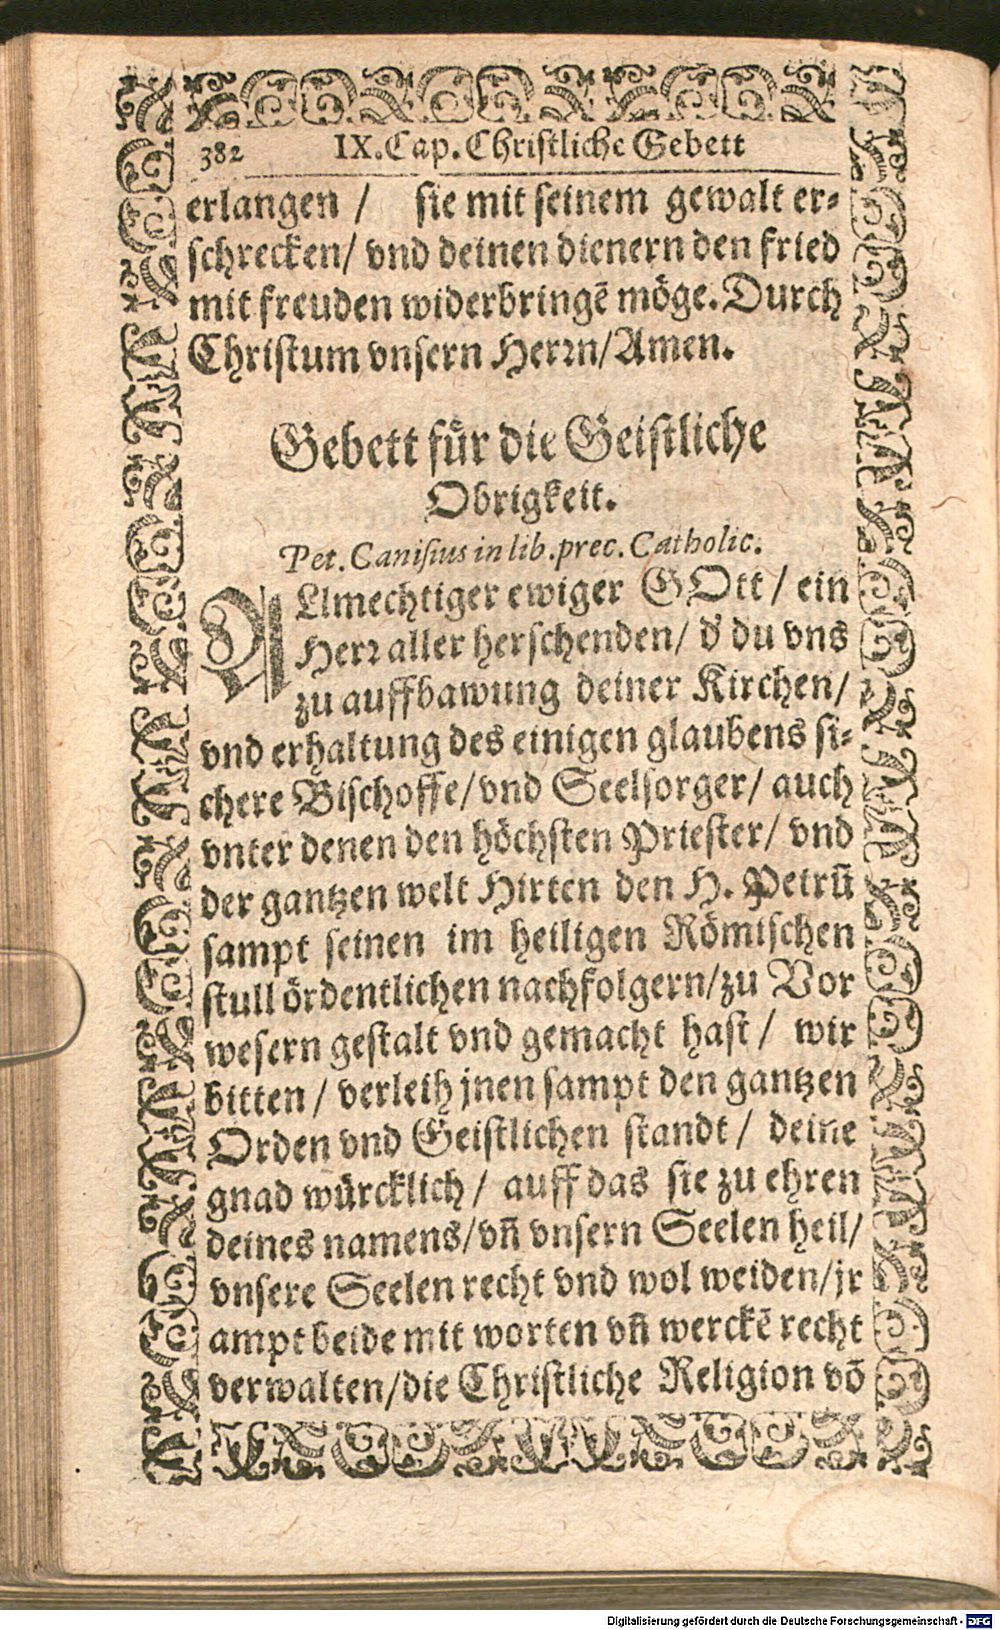 382 IX. Cap. Christliche Gebett
erlangen / sie mit seinem gewalt er⸗
schrecken/ vnd deinen dienern den fried
mit freuden widerbringē möge. Durch
Christum vnsern Herꝛn/Amen.
Gebett fuͤr die Geistliche
Obrigkeit.
Pet. Canisius in lib. prec. Catholic.
ALlmechtiger ewiger GOtt / ein
Herꝛ aller herschenden/ d' du vns
zu auffbawung deiner Kirchen/
vnd erhaltung des einigen glaubens si⸗
chere Bischoffe/vnd Seelsorger/ auch
vnter denen den höchsten Priester/ vnd
der gantzen welt Hirten den H. Petrū
sampt seinen im heiligen Römischen
stull ördentlichen nachfolgern/zu Vor
wesern gestalt vnd gemacht hast / wir
bitten / verleih jnen sampt den gantzen
Orden vnd Geistlichen standt / deine
gnad würcklich / auff das sie zu ehren
deines namens/vn̄ vnsern Seelen heil/
vnsere Seelen recht vnd wol weiden/jr
ampt beide mit worten vn̄ werckē recht
verwalten/die Christliche Religion vō
Digitalisierung gefördert durch die Deutsche Forschungsgemeinschaft - DFG